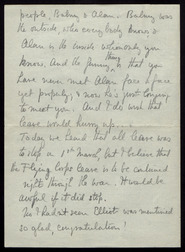 people, Bulmy & Alan. Bulmy was
the outside, who everybody knows &
Alan is the inside whom only you
know. And the funny thing is that you
have never met Alan face to face
yet properly, & now he's just longing
to meet you. And I do wish that
leave would hurry up.
Today we heard that all leave was
to stop on 1st March, but I believe that
the Flying Corps leave is to be continued
right through the war. It would be
awful if it did stop.
No I hadn't seen Elliot was mentioned
so glad, congratulations